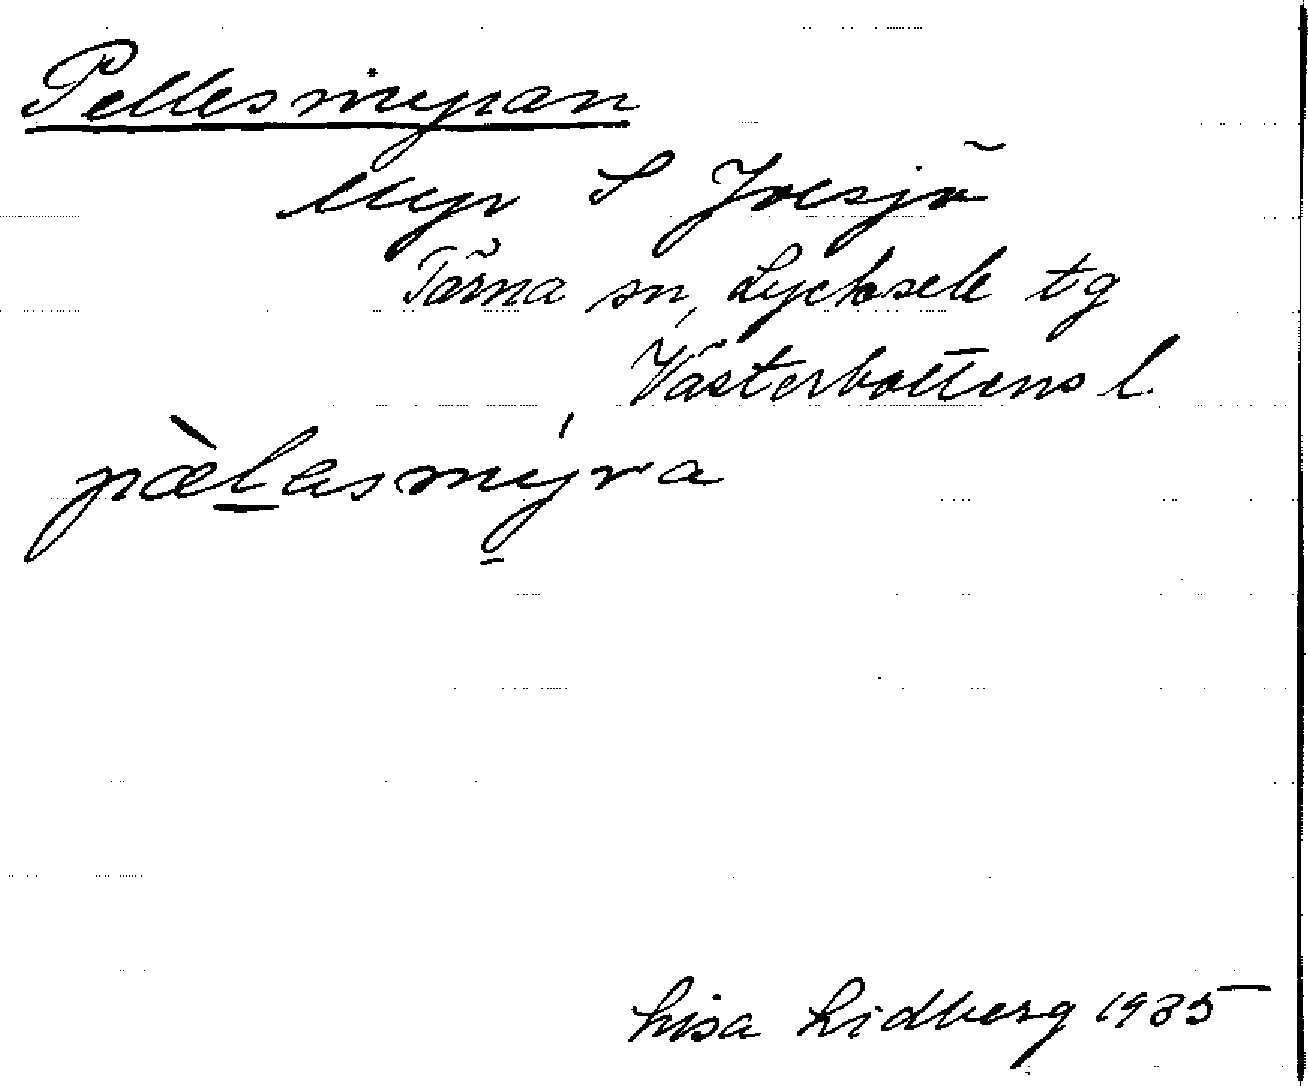 Pellesmyran
Myr S Joesjö
Tärna sn, Lycksele tg
Västerbottens l.
pæ̀lasmy�reva
Lisa Lidberg 1935